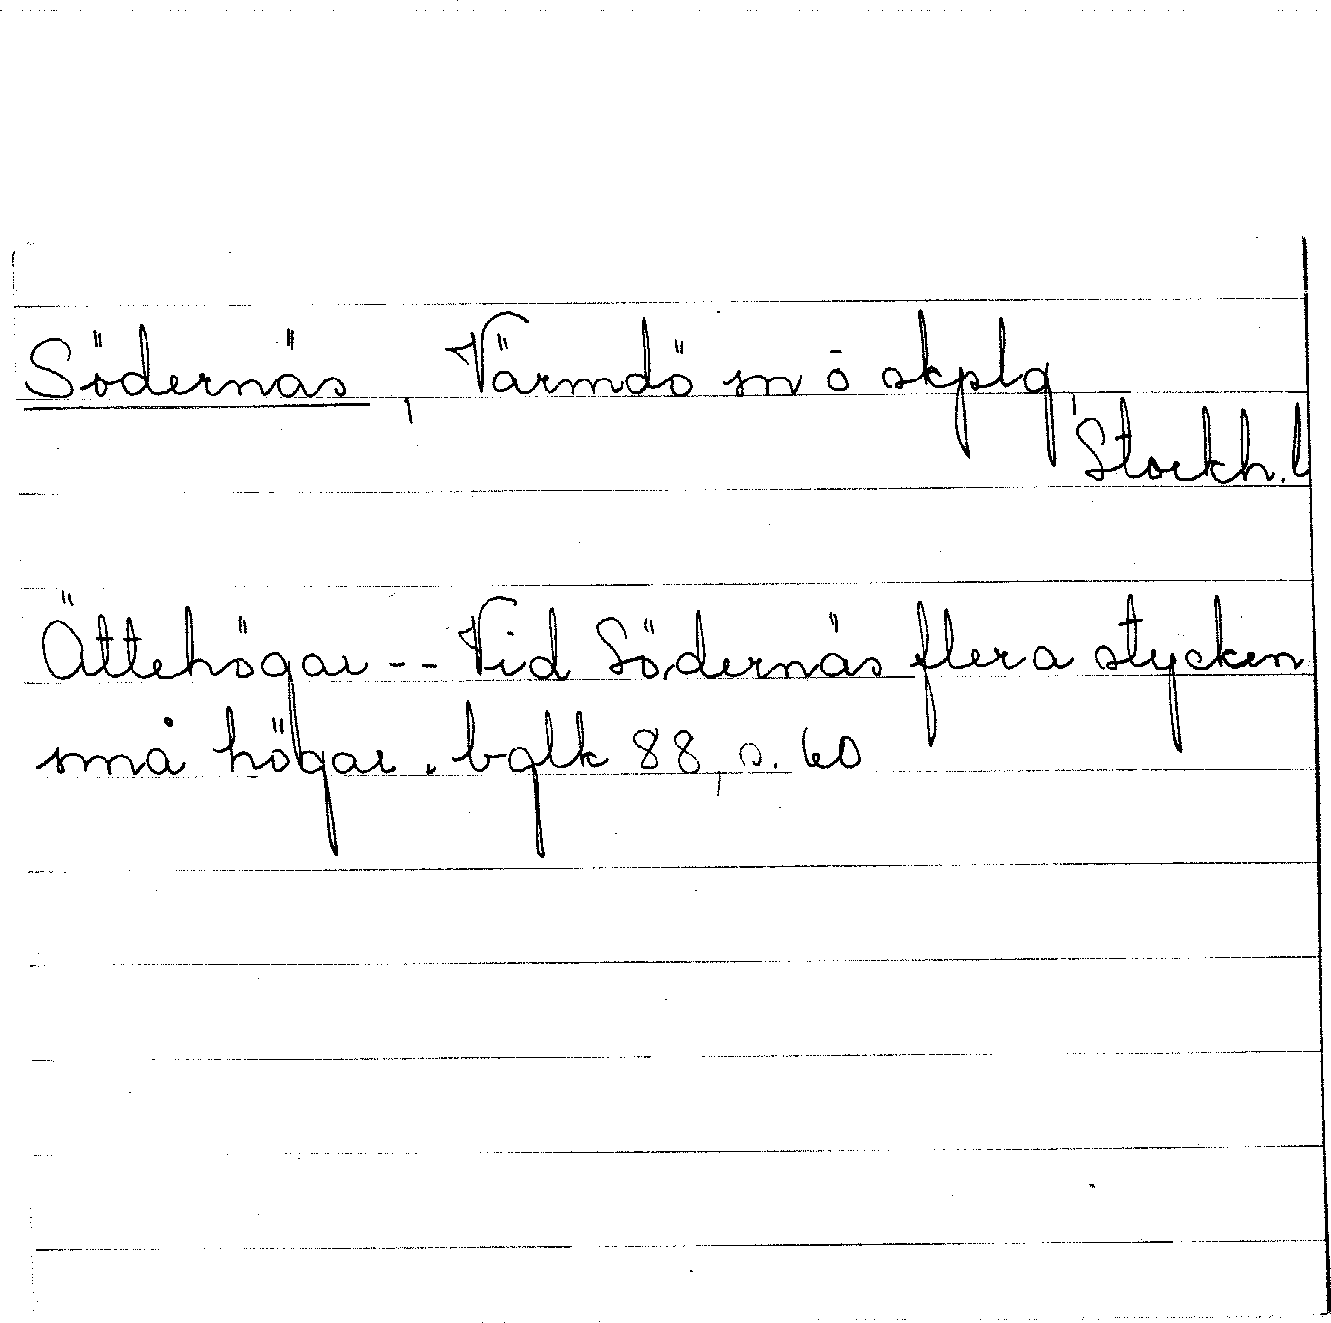 Södernäs, Värmdö sn o skplg,
Stockh. l
Ättehögar -- Vid Södernäs flera stycken
små högar. bglk 88, s. 60